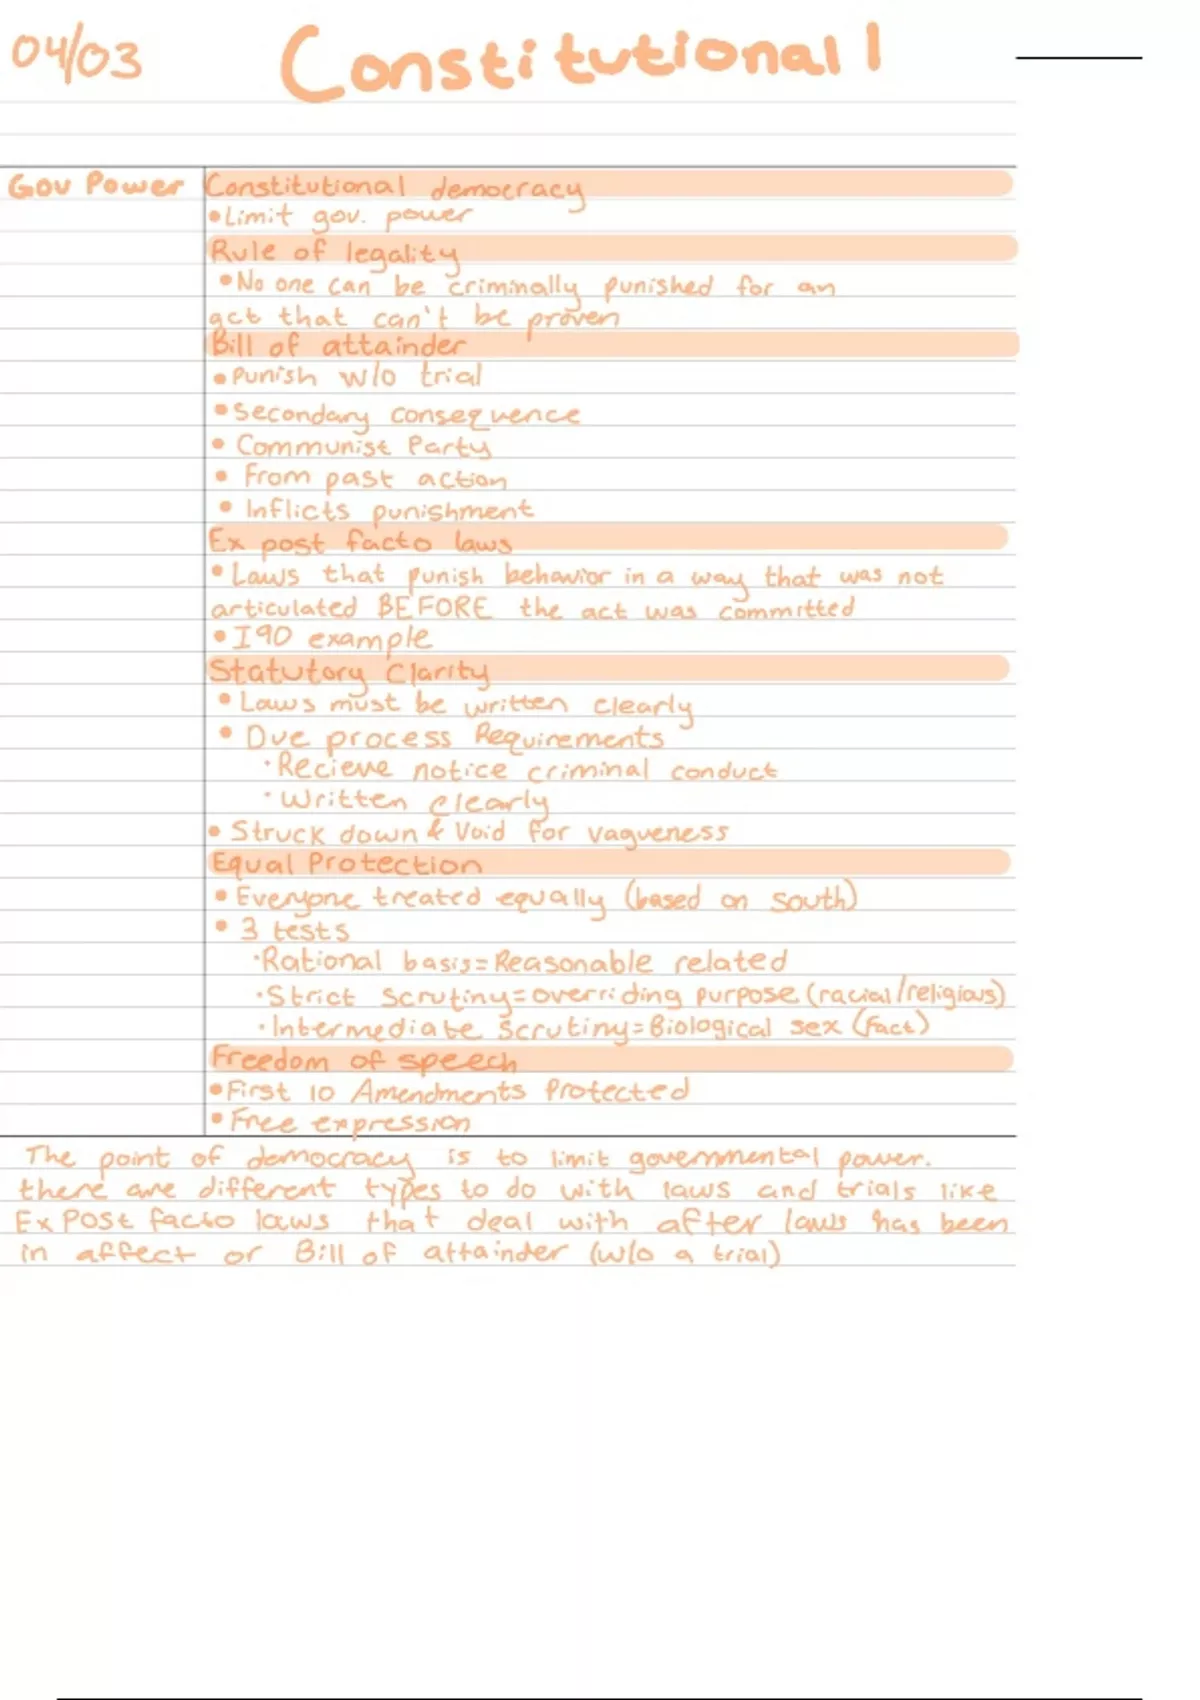 04/03
Constitutional 1
Gov Power
Constitutional democracy
• Limit gov. power
Rule of legality
• No one can be criminally punished for an
act that can't be proven
Bill of attainder
• Punish w/o trial
• Secondary consequence
• Communist Party
• From past action
• Inflicts punishment
Ex post facto laws
• Laws that punish behavior in a way that was not
articulated BEFORE the act was committed
• I90 example
Statutory Clarity
• Laws must be written clearly
• Due process Requirements
· Recieve notice criminal conduct
· Written clearly
• Struck down & Void for vagueness
Equal Protection
• Everyone treated equally (based on south)
• 3 tests
· Rational basis = Reasonable related
· Strict scrutiny = overriding purpose (racial/religious)
· Intermediate scrutiny = Biological sex (fact)
Freedom of speech
• First 10 Amendments Protected
• Free expression
The point of democracy is to limit governmental power.
there are different types to do with laws and trials like
Ex Post facto laws that deal with after laws has been
in affect or Bill of attainder (w/o a trial)